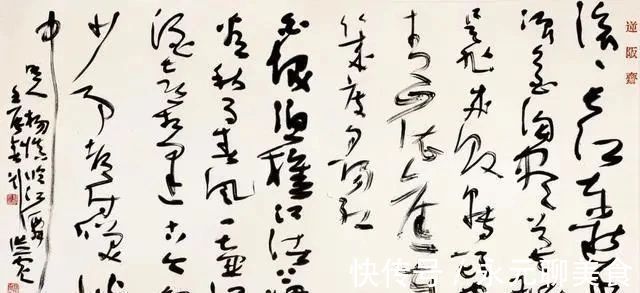 滚々长江东逝
浪花淘尽英
是非成败转头
青山依旧
几度夕阳红
白发渔樵江渚上
惯看秋月春风一壶
浊酒喜相逢古今多
少事都付笑谈
中
杨慎临江仙
快传号 / 永元聊美食